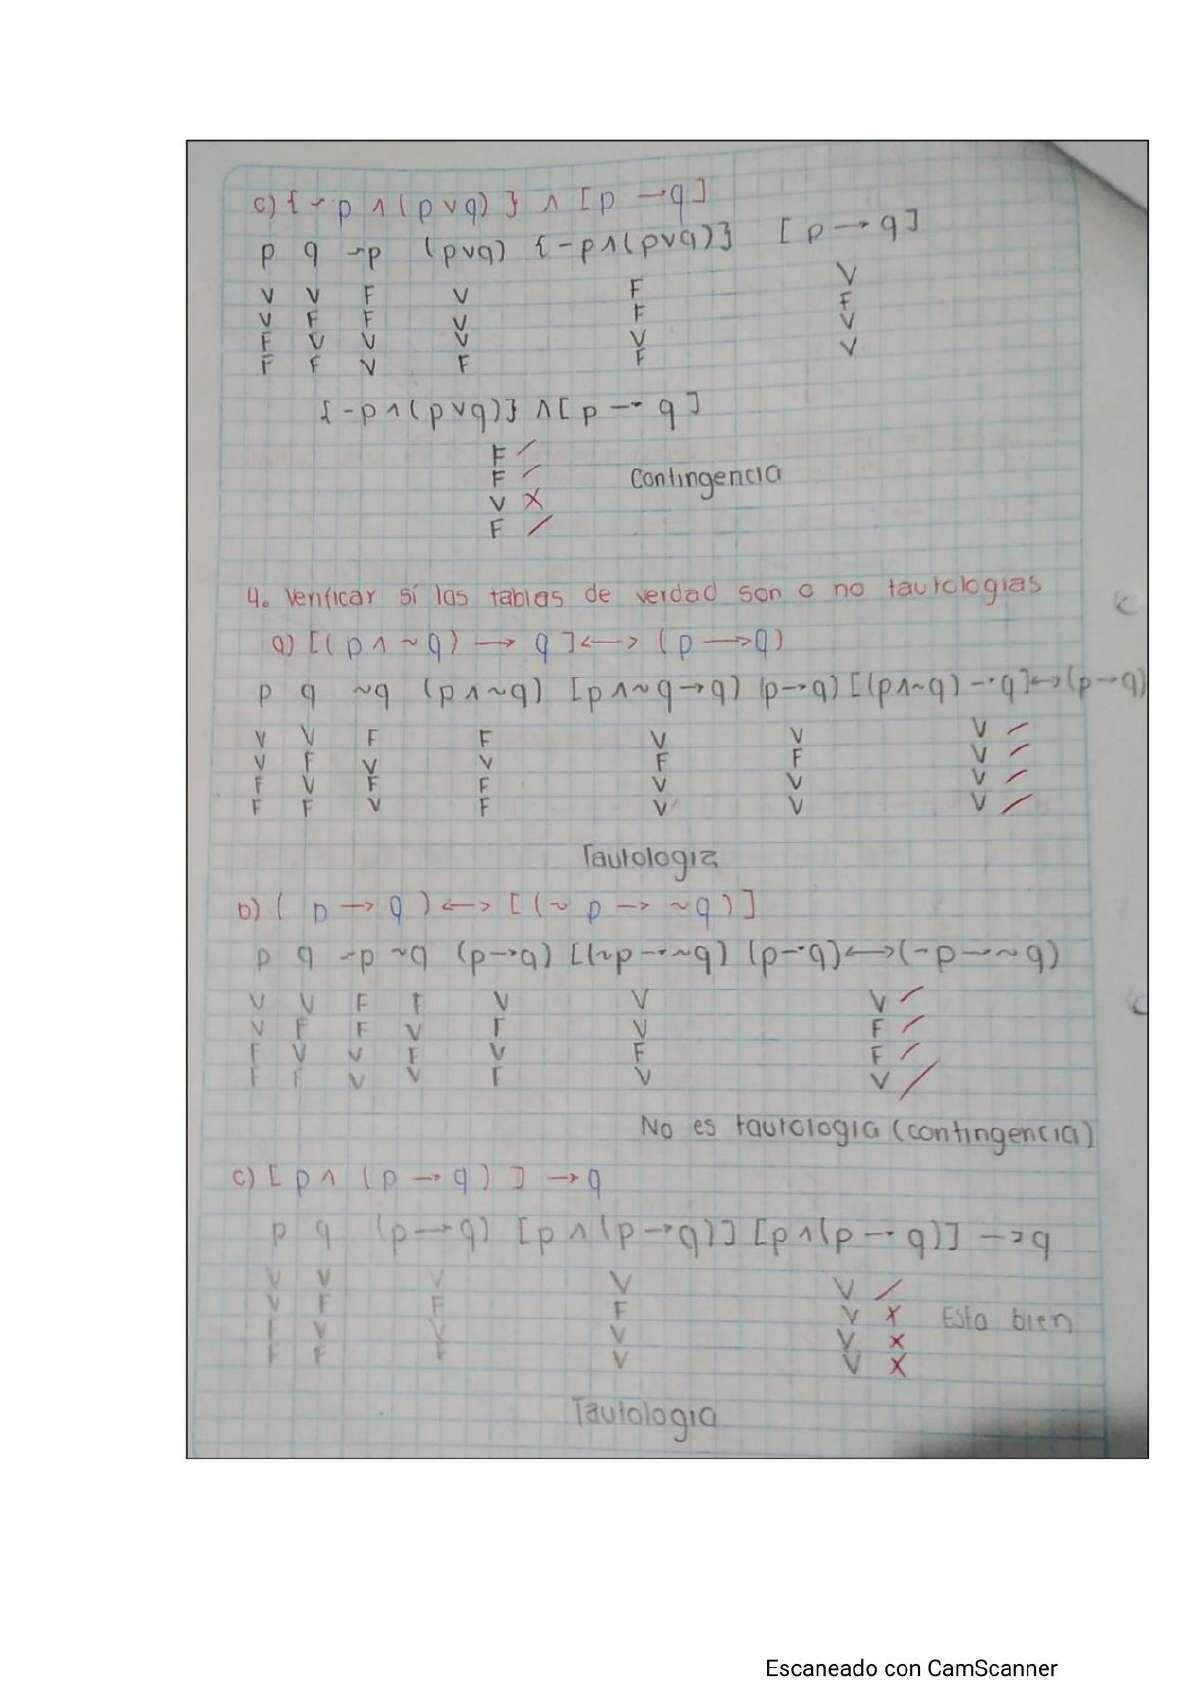 c) { ~ p ∧ ( p ∨ q ) } ∧ [ p → q ]
p q ~p (p∨q) {-p∧(p∨q)} [ p → q ]
V V F V F V
V F F V F F
F V V V V V
F F V F F V
{ -p ∧ (p∨q)} ∧ [ p → q ]
F /
F / Contingencia
V X
F /
4. Verificar si las tablas de verdad son o no tautologías
a) [( p ∧ ~ q ) → q ] <-> ( p → q )
p q ~q (p∧~q)
V V F F V V V /
V F V V F F V /
F V F F V V V /
F F V F V V V /
Tautologia
b) ( p → q ) <-> [ ( ~ p → ~ q ) ]
p q ~p ~q
V V F F V V V /
V F F V F V F /
F V V F V F F /
F F V V F V V /
No es tautologia (contingencia)
c) [ p ∧ ( p → q ) ] → q
p q (p → q) [ p ∧ (p → q)] [ p ∧ (p → q)] → q
V V V V V /
V F F F V X Esta bien
F V V V V X
F F F V V X
Tautologia
Escaneado con CamScanner